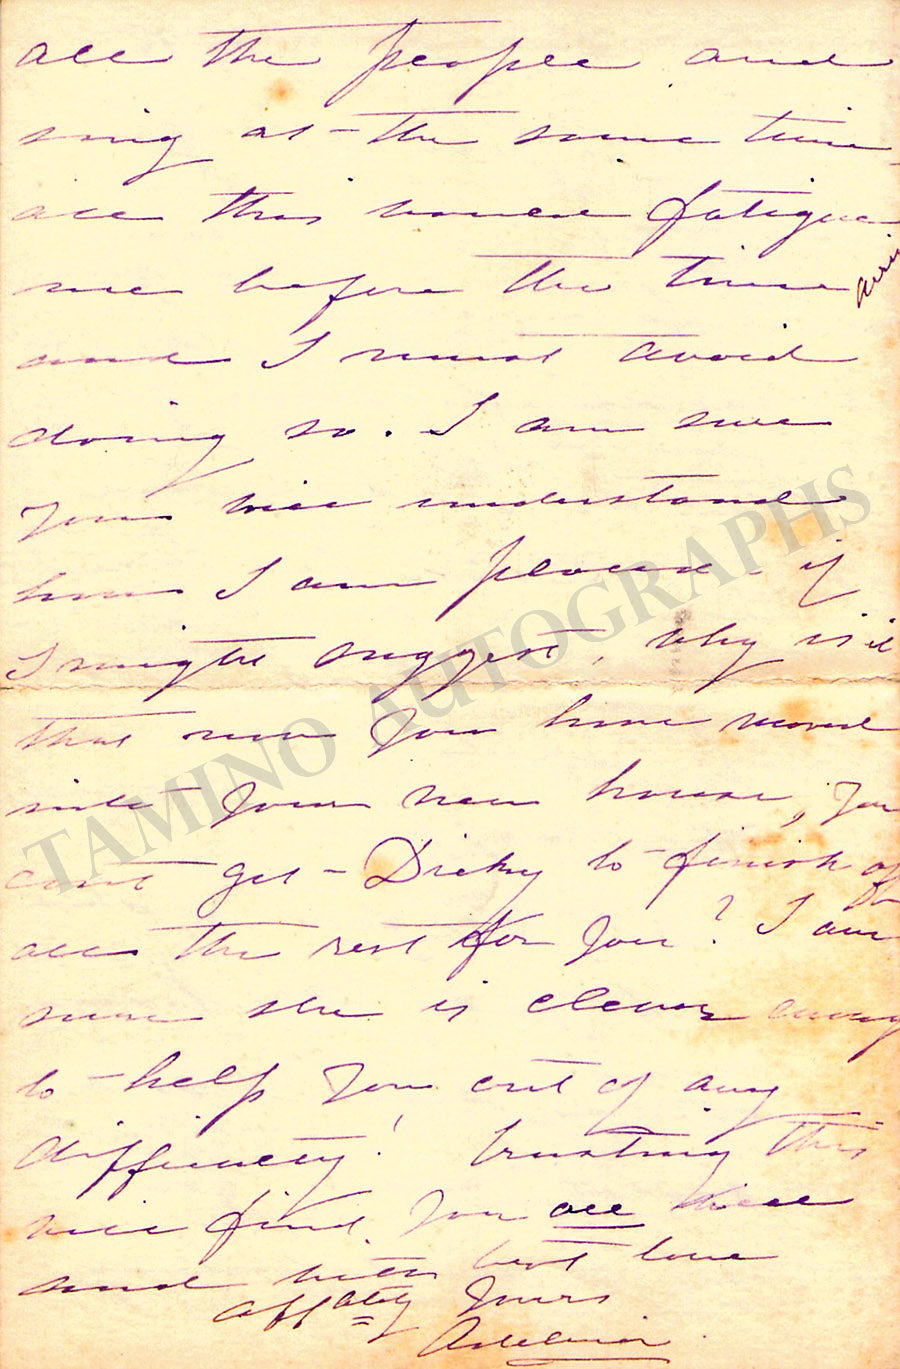 all the people and
sing at the same time
all this would fatigue
me before the time
and I must avoid
doing so. I am sure
you will understand
how I am placed. if
I might suggest, why is it
that now you have moved
into your new house, you
can't get Dicky to finish off
all the rest for you? I am
sure she is clever
to help you out of any
difficulty! Trusting this
will find you all well
and with best love
aff.ately Yours
Adelina
TAMINO AUTOGRAPHS